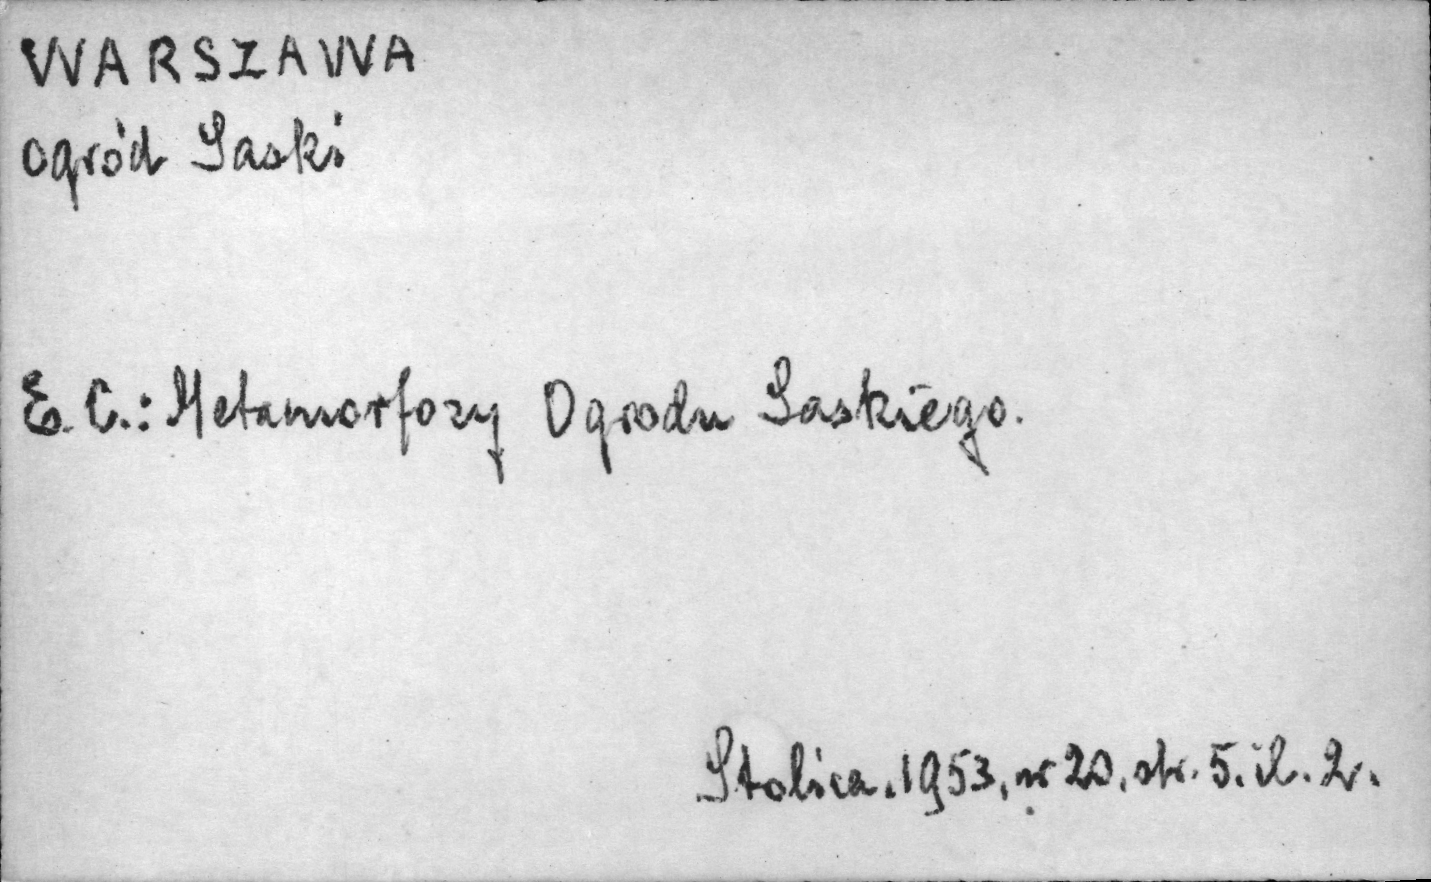 WARSZAWA
ogród Saski
E. C.: Metamorfozy Ogrodu Saskiego.
Stolica. 1953, nr 20. str. 5. il. 2.